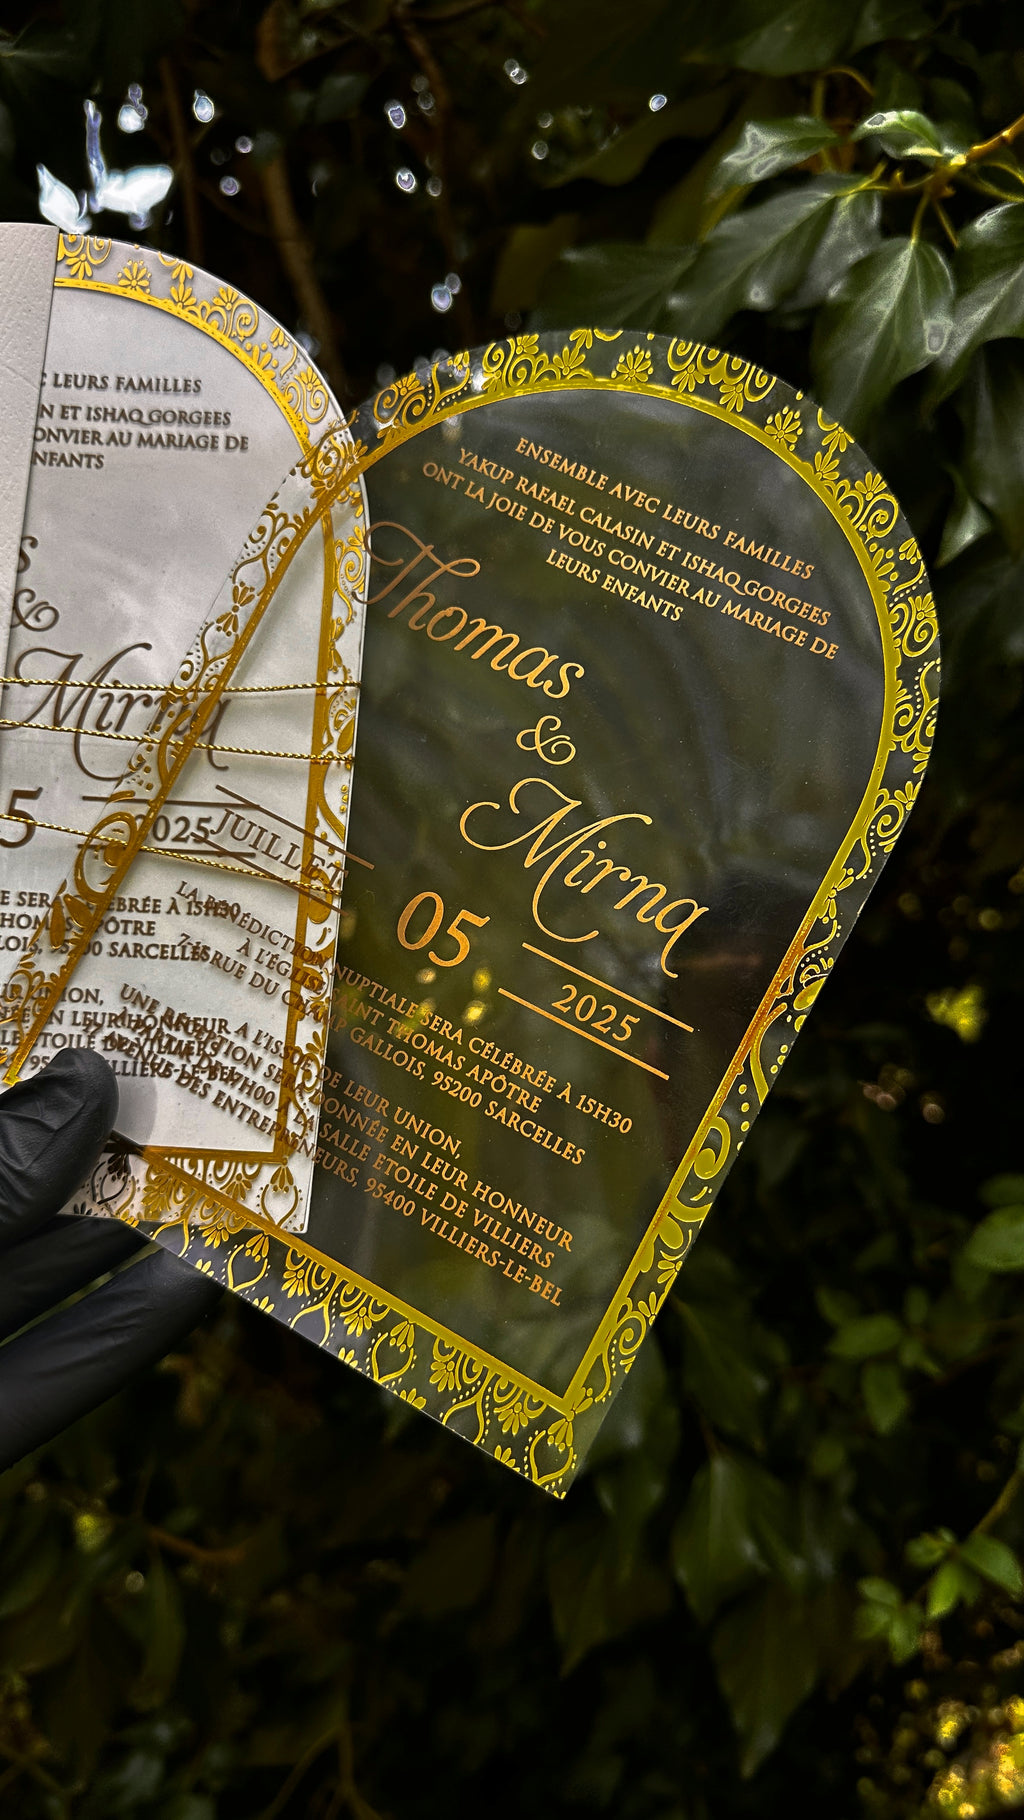 ENSEMBLE AVEC LEURS FAMILLES
YAKUP RAFAEL CALASIN ET ISHAQ GORGEES
ONT LA JOIE DE VOUS CONVIER AU MARIAGE DE
LEURS ENFANTS
Thomas
&
Mirna
JUILLET 05 2025
LA BÉNÉDICTION NUPTIALE SERA CÉLÉBRÉE À 15H30
À L'ÉGLISE SAINT THOMAS APÔTRE
7 RUE DU CHAMP GALLOIS, 95200 SARCELLES
A L'ISSUE DE LEUR UNION,
UNE RÉCEPTION SERA DONNÉE EN LEUR HONNEUR
19H00 À LA SALLE ETOILE DE VILLIERS
DES ENTREPRENEURS, 95400 VILLIERS-LE-BEL
LEURS FAMILLES
N ET ISHAQ GORGEES
ONVIER AU MARIAGE DE
NFANTS
s
&
Mirna
5 2025
SERA CÉLÉBRÉE À 15H30
THOMAS APÔTRE
LOIS, 95200 SARCELLES
UNION,
EN LEUR HONNEUR
ETOILE DE VILLIERS
VILLIERS-LE-BEL